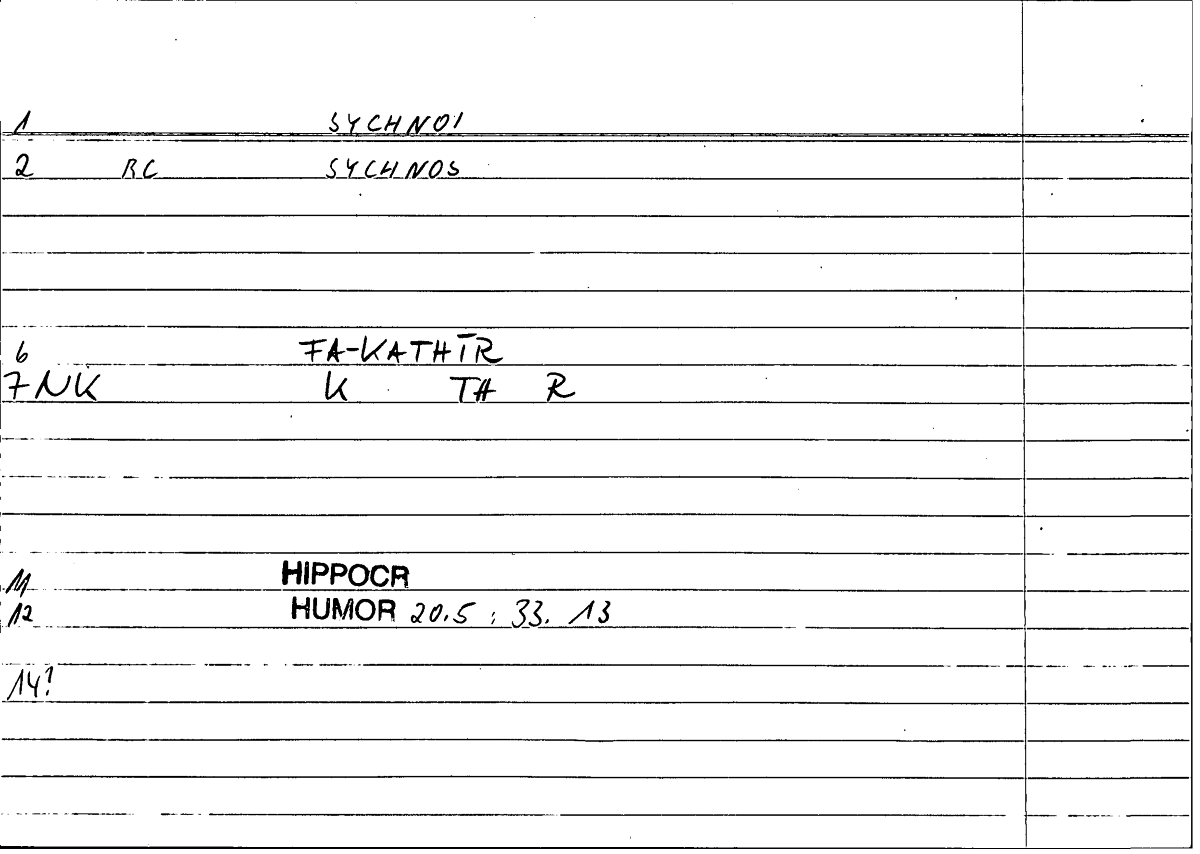 1 SYCHNOI
2 RC SYCHNOS
6 FA-KATHĪR
7 NK K TH R
11 HIPPOCR
12 HUMOR 20.5 : 33. 13
14?